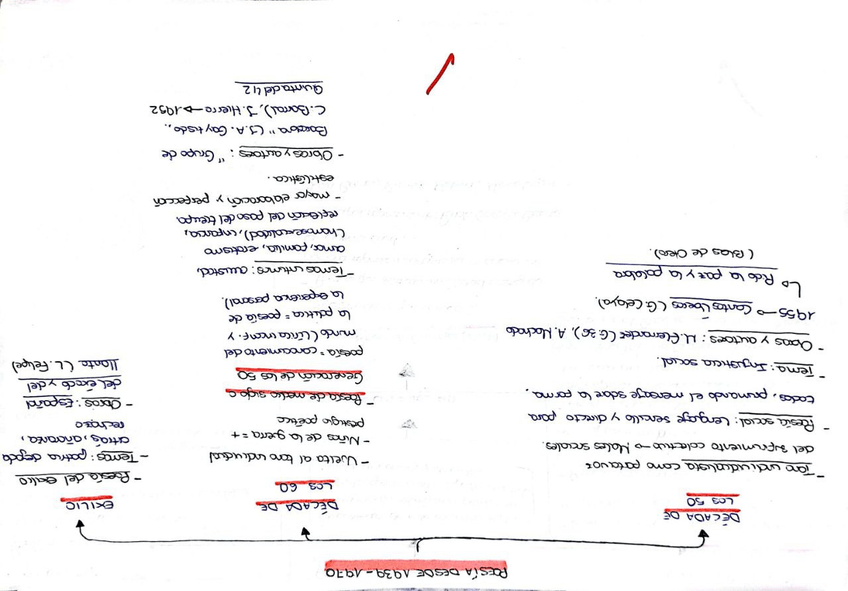 POESÍA DESDE 1939-1970
DÉCADA DE
LOS 50
- Tono individualista como portavoz
del sufrimiento colectivo → Males sociales.
- Poesía social: Lenguaje sencillo y directo para
todos, primando el mensaje sobre la forma.
- Tema: Injusticia social.
- Obras y autores: M. Hernández (G.36), A. Machado
1955 → Cantos Íberos (G. Celaya).
↳ Pido la paz y la palabra
(Blas de Otero).
DÉCADA DE
LOS 60
- Vuelta al tono individual
- Niños de la guerra = +
prestigio poético
- Poesía de medio siglo
Generación de los 50
poesía = conocimiento del
mundo (lírica inconf. y
la política = poesía de
la experiencia personal).
- Temas íntimos: amistad,
amor, familia, erotismo
(homosexualidad), infancia,
reflexión del paso del tiempo
- mayor elaboración y perfección
estilística.
- Obras y autores: "Grupo de
Barcelona" (J.A. Goytisolo,
C. Barral), J. Hierro → 1952
Quinta del 42
EXILIO
- Poesía del exilio
- Temas: patria dejada
atrás, añoranza,
rechazo
- Obras: Español
del éxodo y del
llanto (L. Felipe)